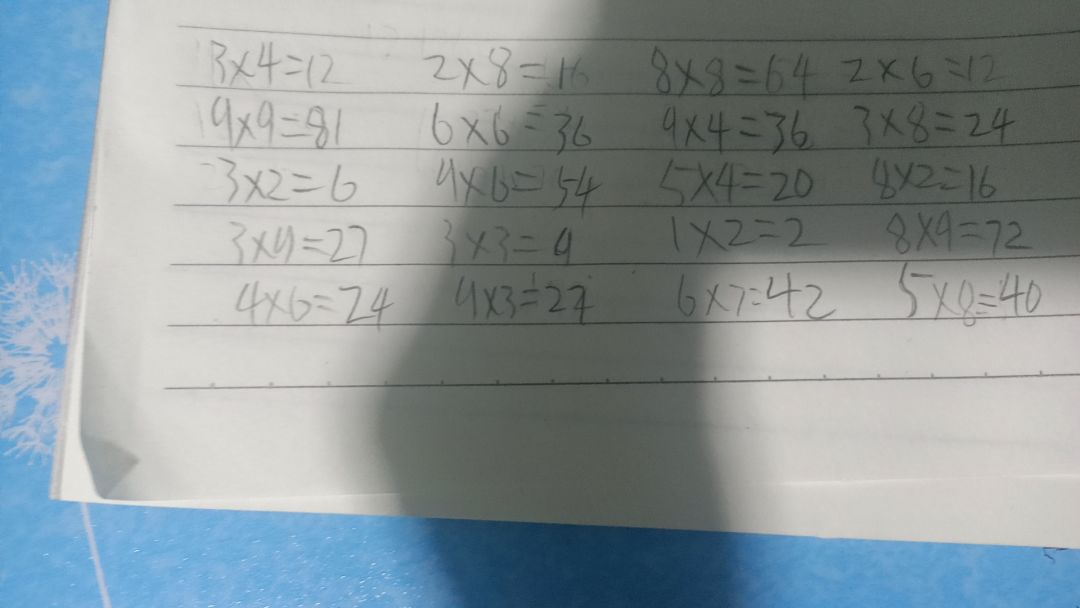 3×4=12 2×8=16 8×8=64 2×6=12
9×9=81 6×6=36 9×4=36 3×8=24
3×2=6 9×6=54 5×4=20 8×2=16
3×9=27 3×3=9 1×2=2 8×9=72
4×6=24 9×3=27 6×7=42 5×8=40